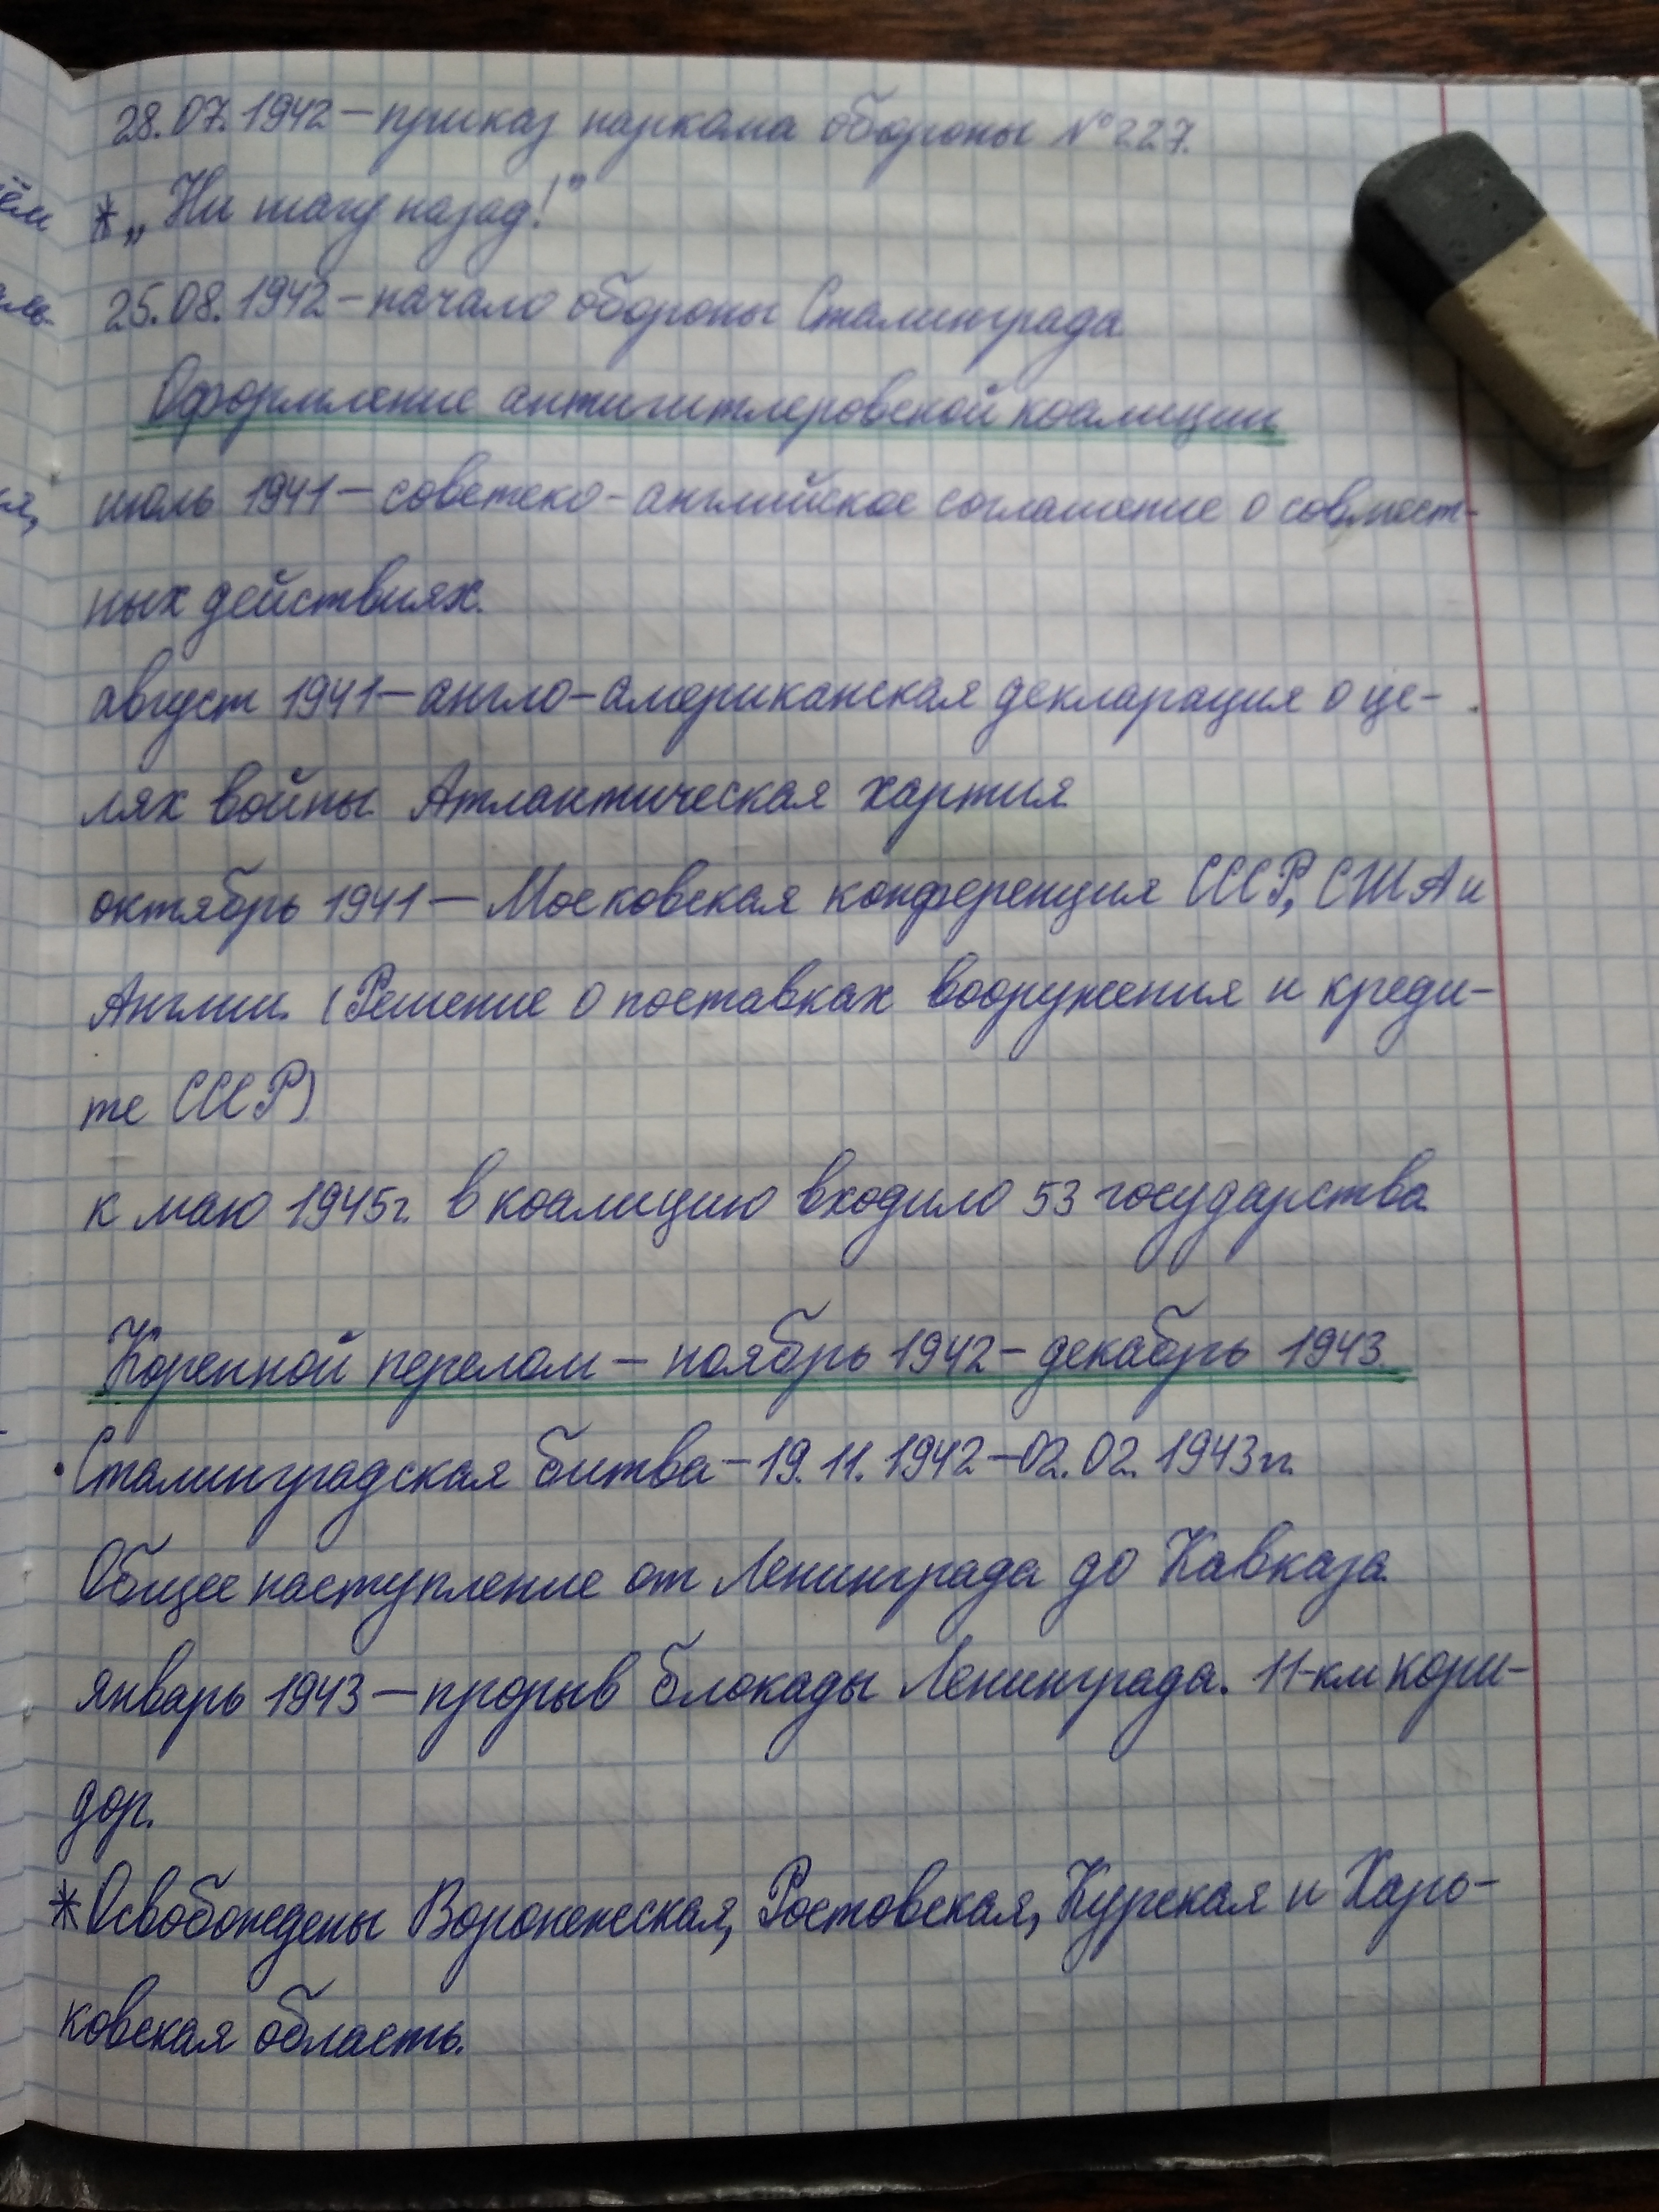 28.07.1942 – приказ наркома обороны №227.
* „Ни шагу назад!”
25.08.1942 – начало обороны Сталинграда
Оформление антигитлеровской коалиции
июль 1941 – советско-английское соглашение о совмест-
ных действиях.
август 1941 – англо-американская декларация о це-
лях войны. Атлантическая хартия
октябрь 1941 – Московская конференция СССР, США и
Англии. (Решение о поставках вооружения и креди-
те СССР)
к маю 1945г. в коалицию входило 53 государства.
Коренной перелом – ноябрь 1942 – декабрь 1943.
• Сталинградская битва – 19.11.1942 – 02.02.1943гг.
Общее наступление от Ленинграда до Кавказа.
январь 1943 – прорыв блокады Ленинграда. 11-км кори-
дор.
* Освобождены Воронежская, Ростовская, Курская и Харь-
ковская область.